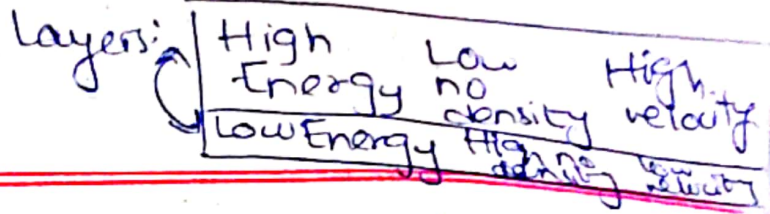 Layers:
High Low High
Energy no density velocity
Low Energy High no density low velocity